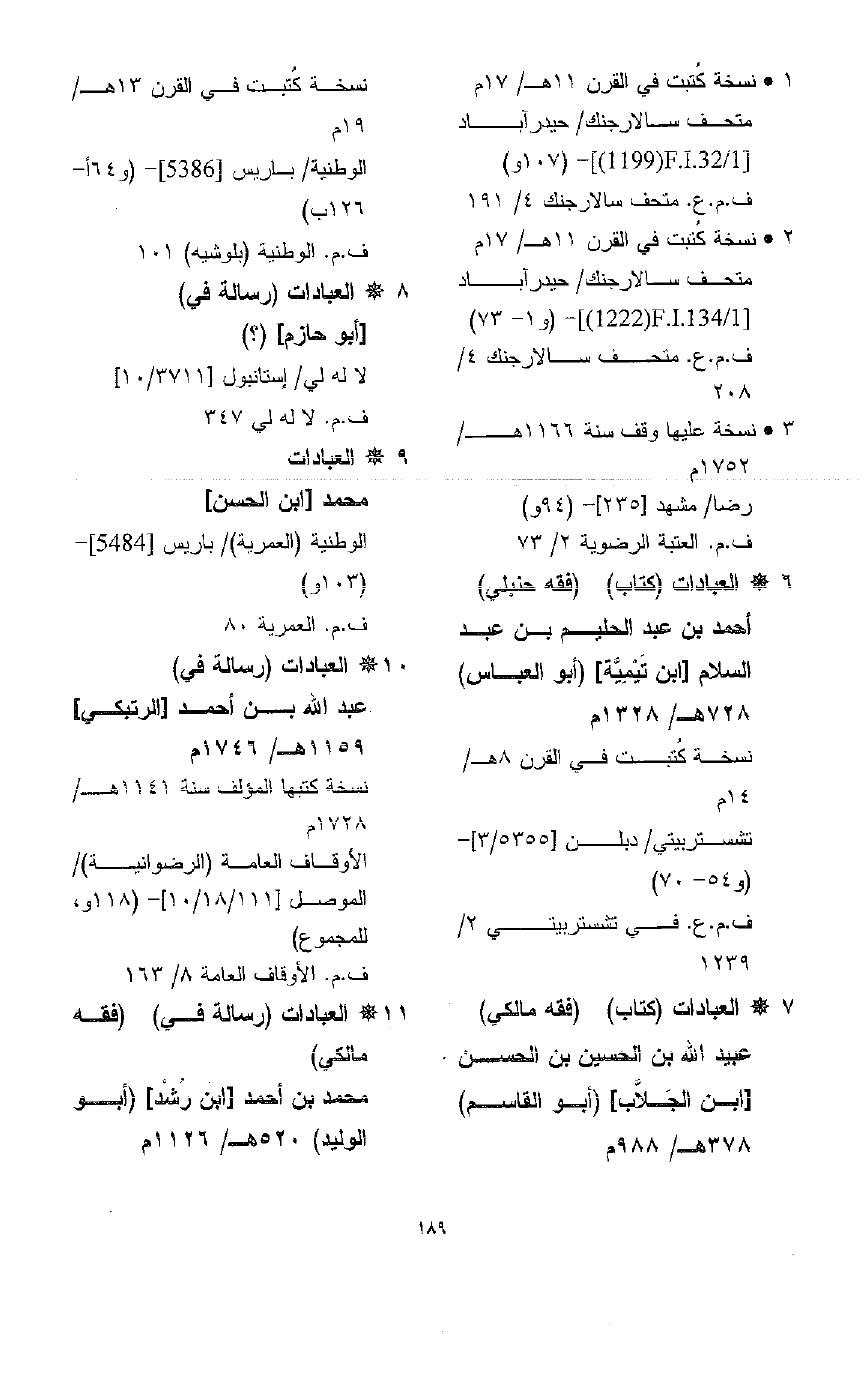 ١ • نسخة كُتبت في القرن ١١هـ/ ١٧م
متحف سالارجنك/ حيدرآباد
[F.I.32/1(1199)]– (١٠٧و)
ف.م.ع. متحف سالارجنك ٤/ ١٩١
٢ • نسخة كُتبت في القرن ١١هـ/ ١٧م
متحف سالارجنك/ حيدرآباد
[F.I.134/1(1222)]– (و١– ٧٣)
ف.م.ع. متحف سالارجنك ٤/
٢٠٨
٣ • نسخة عليها وقف سنة ١١٦٦هـ/
١٧٥٢م
رضا/ مشهد [٢٣٥]– (٩٤و)
ف.م. العتبة الرضوية ٢/ ٧٣
٦ ❋ العبادات (كتاب) (فقه حنبلي)
أحمد بن عبد الحليم بن عبد
السلام [ابن تَيْمِيَّة] (أبو العباس)
٧٢٨هـ/ ١٣٢٨م
نسخة كُتبت في القرن ٨هـ/
١٤م
تشستربيتي/ دبلن [٣/٥٣٥٥]–
(و٥٤– ٧٠)
ف.م.ع. في تشستربيتي ٢/
١٢٣٩
٧ ❋ العبادات (كتاب) (فقه مالكي)
عبيد الله بن الحسين بن الحسن
[ابن الجَلاَّب] (أبو القاسم)
٣٧٨هـ/ ٩٨٨م
نسخة كُتبت في القرن ١٣هـ/
١٩م
الوطنية/ باريس [5386]– (و٦٤أ–
١٢٦ب)
ف.م. الوطنية (بلوشيه) ١٠١
٨ ❋ العبادات (رسالة في)
[أبو حازم] (؟)
لا له لي/ إستانبول [١٠/٣٧١١]
ف.م. لا له لي ٣٤٧
٩ ❋ العبادات
محمد [ابن الحسن]
الوطنية (العمرية)/ باريس [5484]–
(١٠٣و)
ف.م. العمرية ٨٠
١٠ ❋ العبادات (رسالة في)
عبد الله بن أحمد [الرتبكي]
١١٥٩هـ/ ١٧٤٦م
نسخة كتبها المؤلف سنة ١١٤١هـ/
١٧٢٨م
الأوقاف العامة (الرضوانية)/
الموصل [١٠/١٨/١١١]– (١١٨و،
للمجموع)
ف.م. الأوقاف العامة ٨/ ١٦٣
١١ ❋ العبادات (رسالة في) (فقه
مالكي)
محمد بن أحمد [ابن رُشْد] (أبو
الوليد) ٥٢٠هـ/ ١١٢٦م
١٨٩